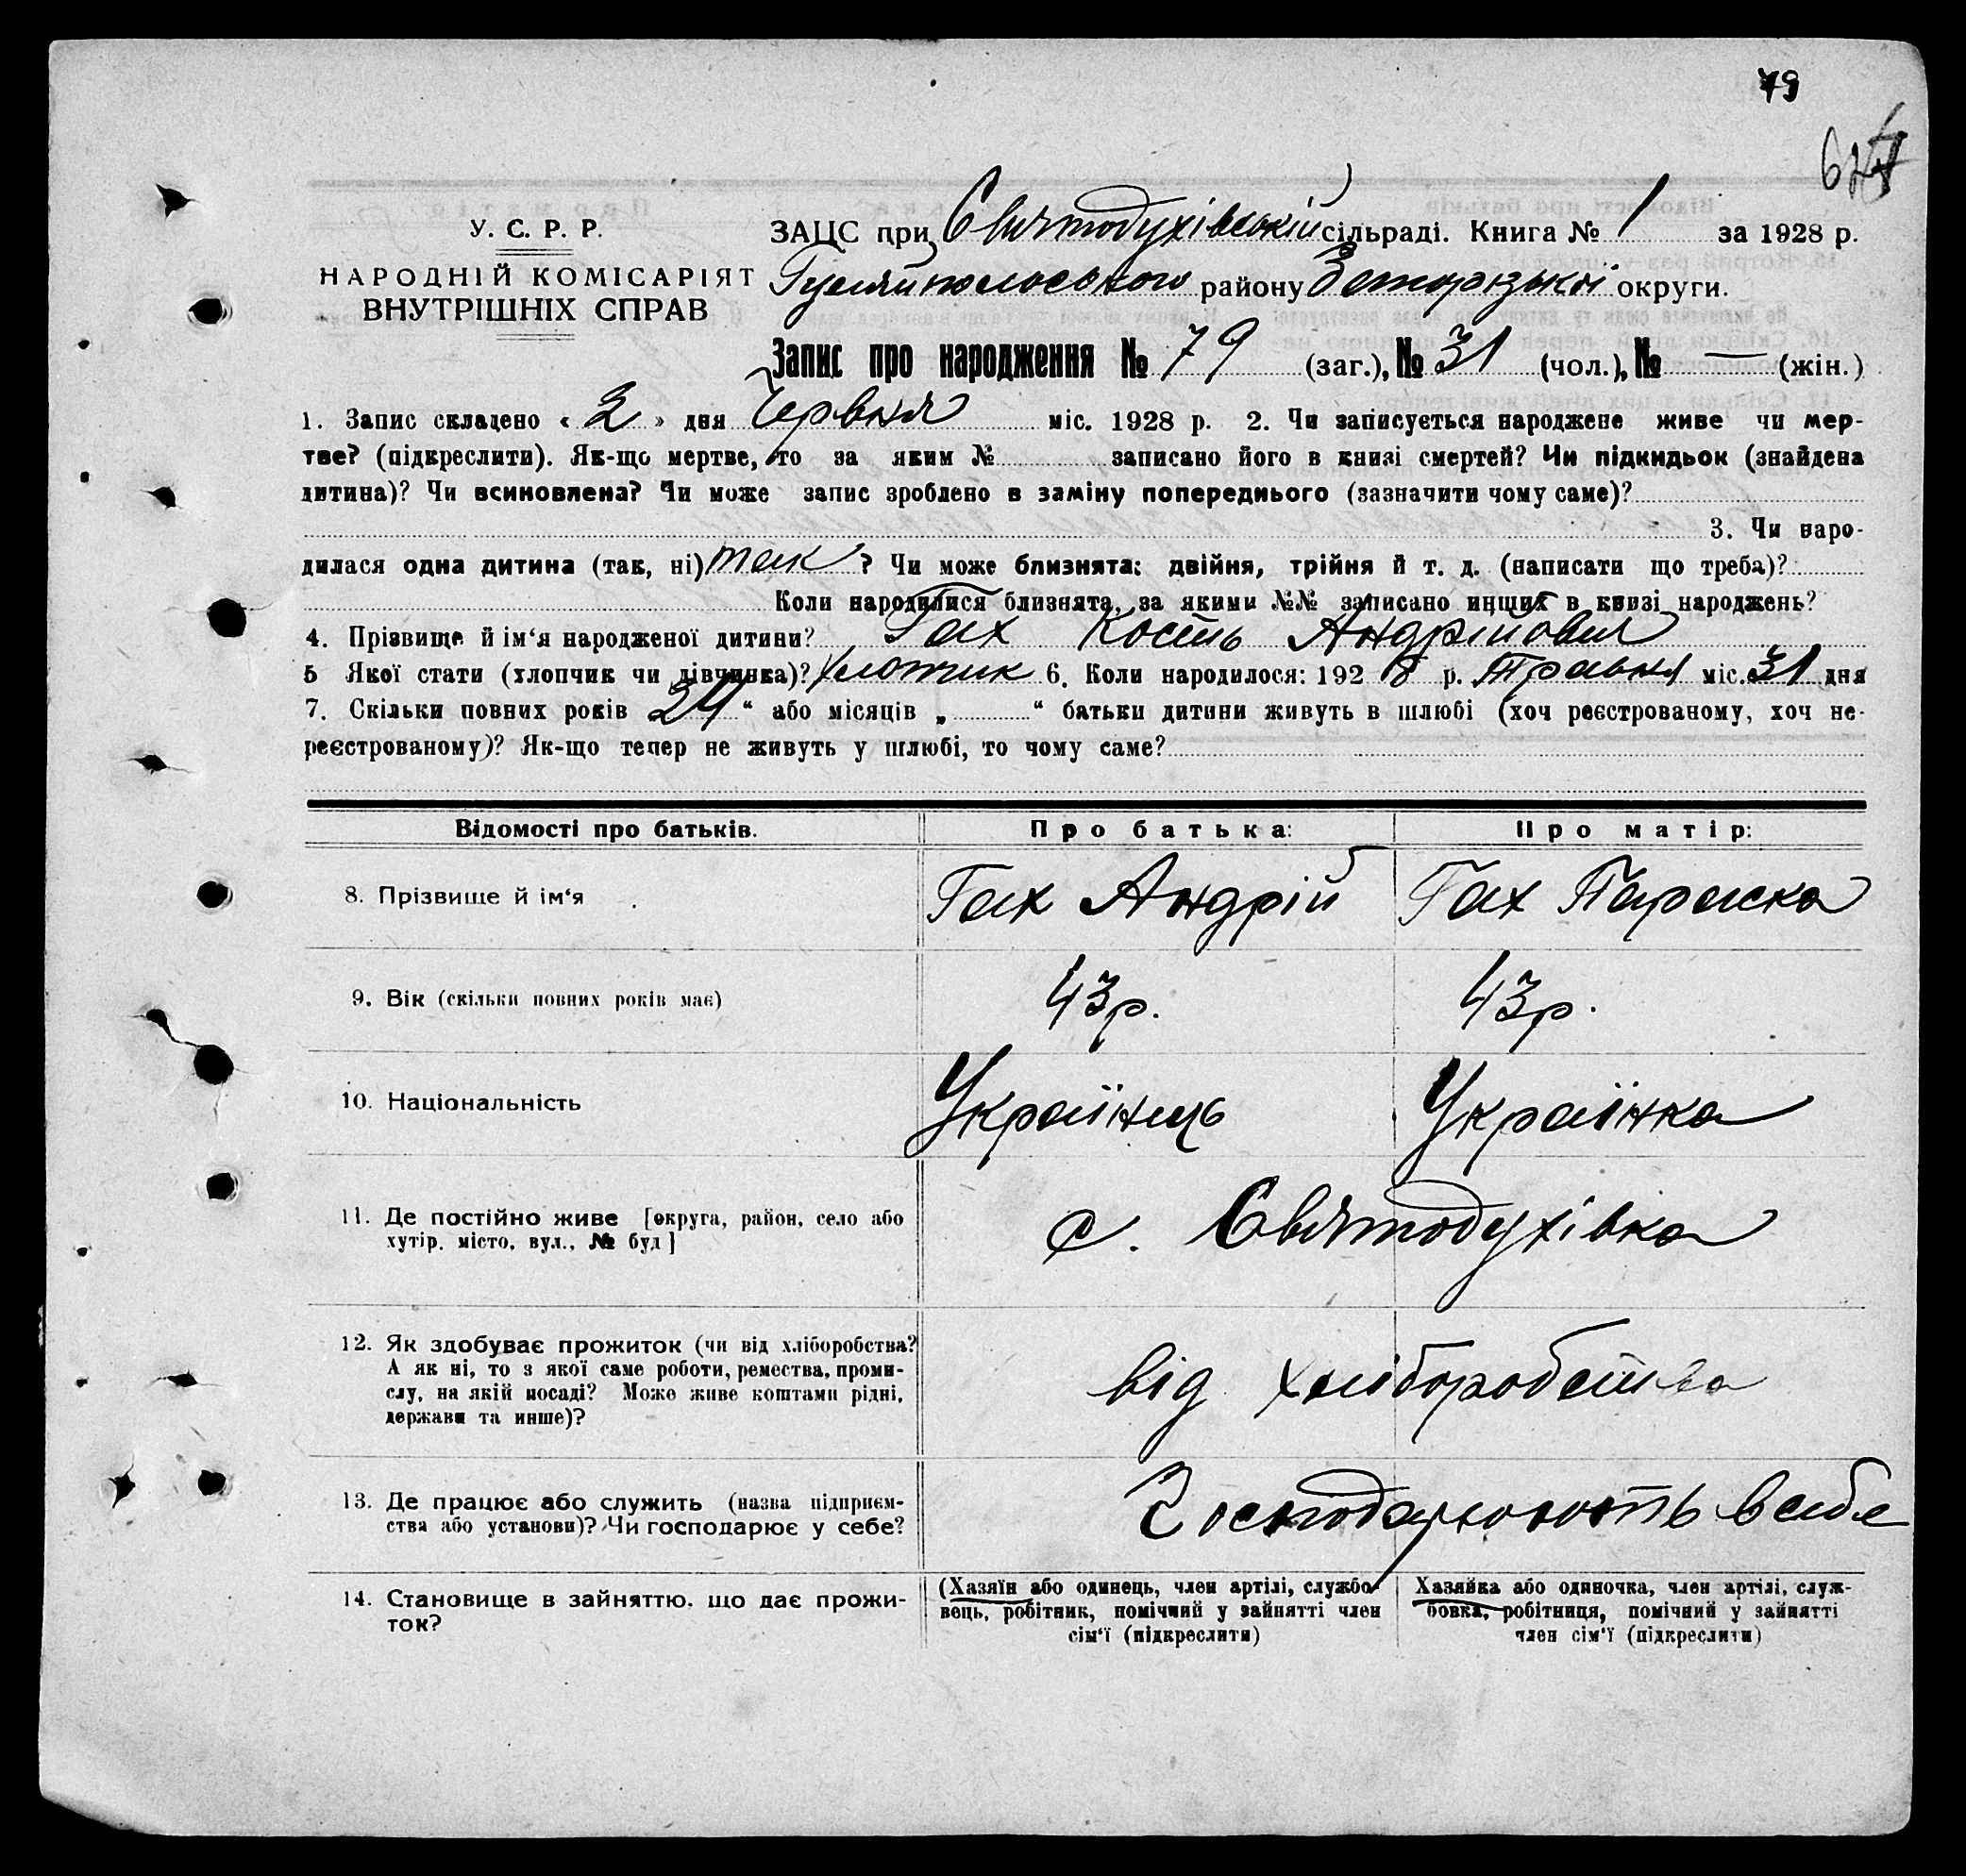 79
У. С. Р. Р.
НАРОДНІЙ КОМІСАРІЯТ
ВНУТРІШНІХ СПРАВ
ЗАЦС при Святодухівській сільраді. Книга № 1 за 1928 р.
Гуляйпольського району Запорізької округи.
Запис про народження № 79 (заг.), № 31 (чол.), № — (жін.)
1. Запис складено « 2 » дня Червня міс. 1928 р. 2. Чи записується народжене живе чи мер-
тве? (підкреслити). Як-що мертве, то за яким № записано його в книзі смертей? Чи підкидьок (знайдена
дитина)? Чи всиновлена? Чи може запис зроблено в заміну попереднього (зазначити чому саме)?
3. Чи наро-
дилася одна дитина (так, ні) так ? Чи може близнята: двійня, трійня й т. д. (написати що треба)?
Коли народилися близнята, за якими №№ записано инших в книзі народжень?
4. Прізвище й ім‘я народженої дитини? Гах Кость Андрійович
5 Якої стати (хлопчик чи дівчинка)? Хлопчик 6. Коли народилося: 192 8 р. Травня міс. 31 дня
7. Скільки повних років 24 “ або місяців „ “ батьки дитини живуть в шлюбі (хоч реєстрованому, хоч не-
реєстрованому)? Як-що тепер не живуть у шлюбі, то чому саме?
Відомості про батьків. Про батька: Про матір:
8. Прізвище й ім‘я Гах Андрій Гах Параска
9. Вік (скільки повних років має) 43 р. 43 р.
10. Національність Українець Українка
11. Де постійно живе [округа, район, село або
хутір, місто, вул., № буд] с. Святодухівка
12. Як здобуває прожиток (чи від хліборобства?
А як ні, то з якої саме роботи, ремества, проми-
слу, на якій посаді? Може живе коштами рідні,
держави та инше)? від хліборобства
13. Де працює або служить (назва підприєм-
ства або установи)? Чи господарює у себе? Господарюють в себе
14. Становище в зайняттю, що дає прожи-
ток?
(Хазяїн або одинець, член артілі, службо-
вець, робітник, помічний у зайнятті член
сім‘ї (підкреслити)
Хазяйка або одиночка, член артілі, служ-
бовка, робітниця, помічний у зайнятті
член сім‘ї (підкреслити)